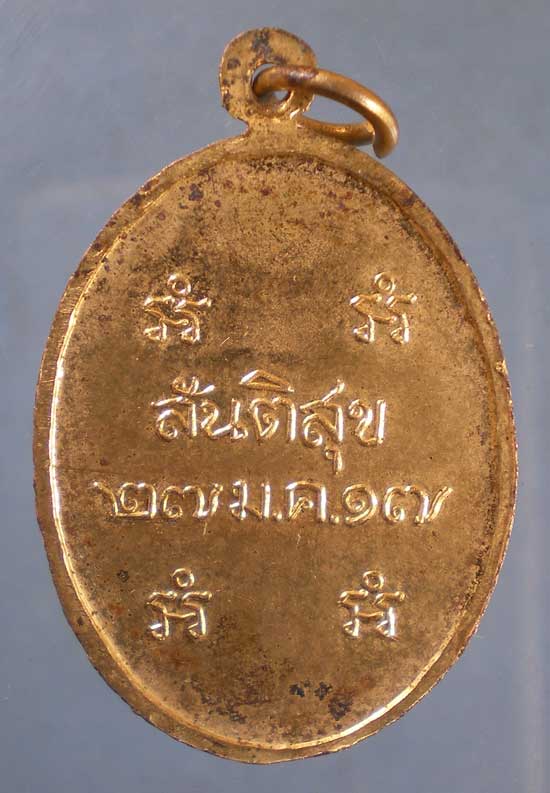 สันติสุข
๒๗ ม.ค.๑๗